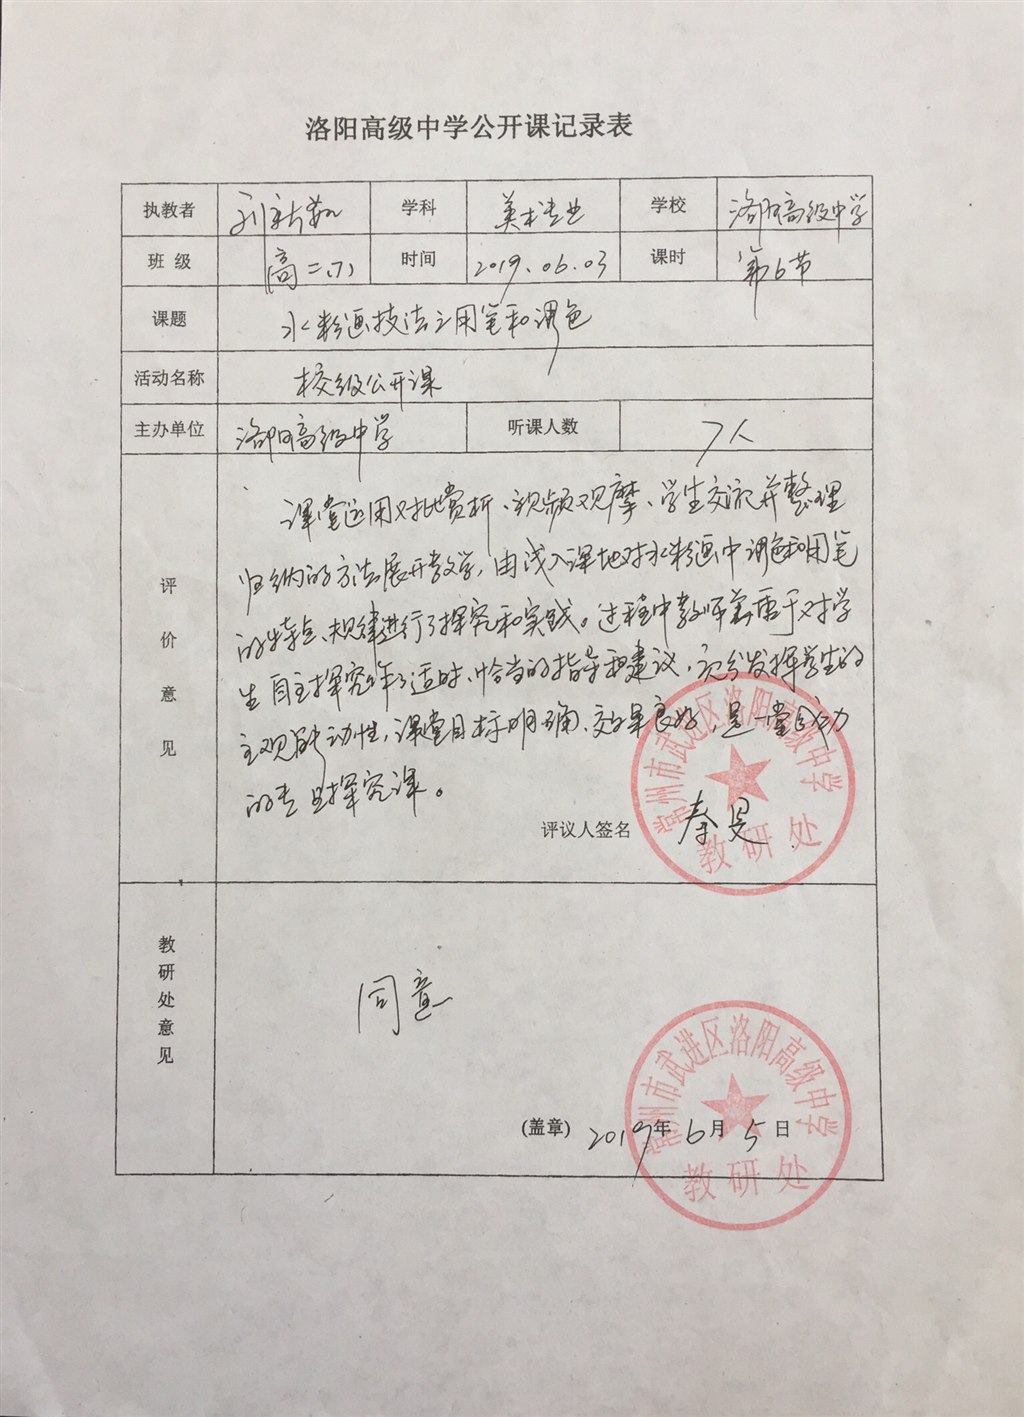 洛阳高级中学公开课记录表
执教者 刘 学科 美术专业 学校 洛阳高级中学
班 级 高二(7) 时间 2019.06.03 课时 第6节
课题 水粉画技法之用笔和调色
活动名称 校级公开课
主办单位 洛阳高级中学 听课人数 7人
评价意见
课堂运用对比赏析、视频观摩、学生交流并整理
归纳的方法展开教学,由浅入深地对水粉画中调色和用笔
的特点、规律进行了探究和实践。过程中教师善于对学
生自主探究作了适时、恰当的指导和建议,充分发挥学生的
主观能动性,课堂目标明确、效果良好,是一堂成功
的专业探究课。
评议人签名 秦旻
常州市武进区洛阳高级中学
教研处
教研处意见
同意
(盖章) 2019年6月5日
常州市武进区洛阳高级中学
教研处